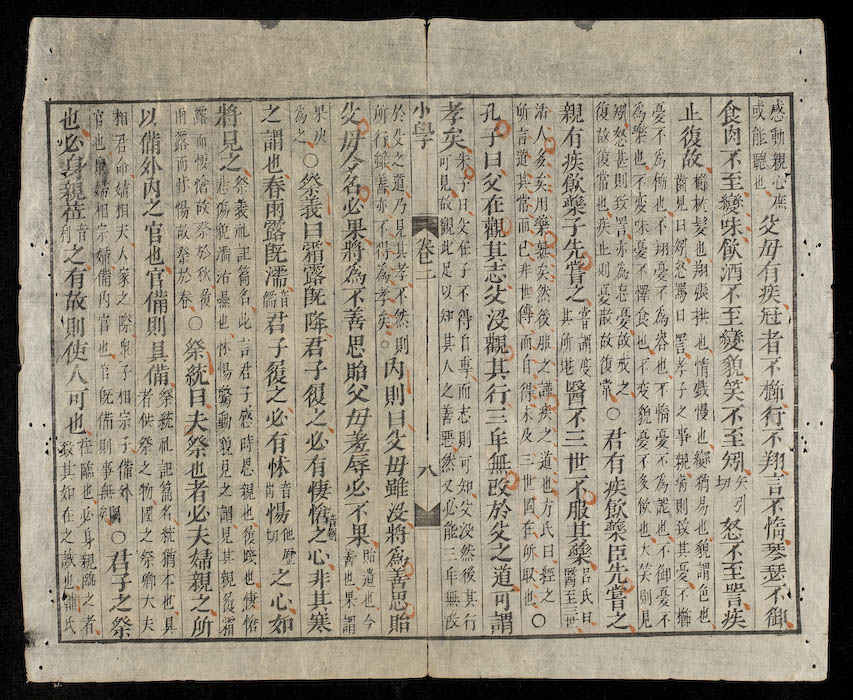 感動親心庶
或能聽也
父母有疾冠者不櫛行不翔言不惰琴瑟不御
食肉不至變味飲酒不至變貌笑不至矧
矢引
切
怒不至詈疾
止復故
櫛梳髮也翔張拱也惰戲慢也變猶易也貌謂色也
齒見曰矧怒罵曰詈孝子之事親病則致其憂不櫛
憂不為飾也不翔憂不為容也不惰憂不為謔也不御憂不
為樂也不變味憂不憚食也不變貌憂不多飲也大笑則見
矧怒甚則致詈亦為忘憂故戒之
復故復常也疾止則憂散故復常
○君有疾飲藥臣先嘗之
親有疾飲藥子先嘗之
嘗謂度
其所堪
醫不三世不服其藥
呂氏曰
醫至三世
治人多矣用藥熟矣然後服之謹疾之道也方氏曰經之
所言道其常而已非世傳而自得未及三世固在所取也
○
孔子曰父在觀其志父沒觀其行三年無改於父之道可謂
孝矣
朱子曰父在子不得自專而志則可知父沒然後其行
可見故觀此足以知其人之善惡然又必能三年無改
小學
卷二
八
於父之道乃見其孝不然則
所行雖善亦不得為孝矣
○內則曰父母雖沒將為善思貽
父母令名必果將為不善思貽父母羞辱必不果
貽遺也令
善也果謂
果決
為之
○祭義曰霜露既降君子履之必有悽愴之心非其寒
之謂也春雨露既濡
音
儒
君子履之必有怵
音
惕
他歷
切
之心如
將見之
祭義禮記篇名此言君子感時思親也履踐也悽愴
悲傷貌濡沾濕也怵惕驚動貌見之謂見其親發霜
露而悽愴故祭於秋發
雨露而怵惕故祭於春
○祭統曰夫祭也者必夫婦親之所
以備外內之官也官備則具備
祭統禮記篇名統猶本也具
者供祭之物國之祭卿大夫
相君命婦相夫人家之際衆子相宗子備外
官也衆婦相宗婦備內官也官既備則事無
○君子之祭
也必身親莅
音
利
之有故則使人可也
莅臨也必身親臨之者
致其如在之誠也輔氏